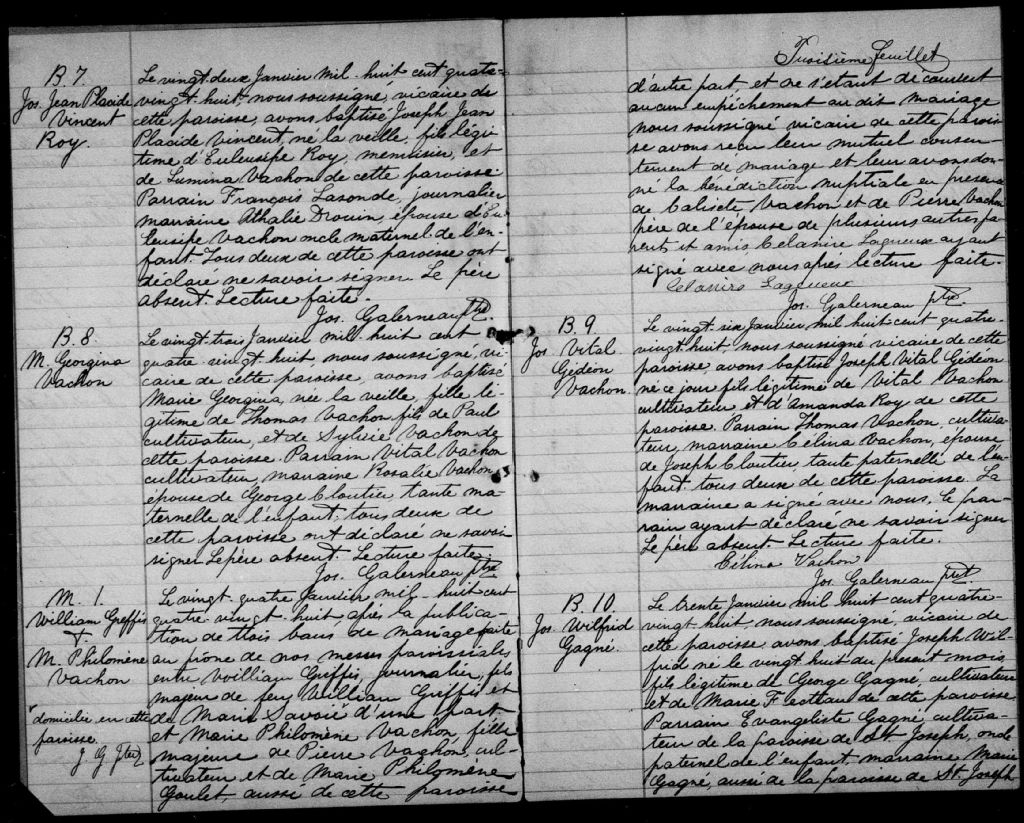 B 7.
Jos. Jean Placide
Vincent
Roy.
Le vingt deux Janvier mil huit cent quatre-
vingt huit nous soussigné, vicaire de
cette paroisse, avons baptisé Joseph Jean
Placide Vincent, né la veille, fils légi
time d'Euleusipe Roy, menuisier, et
de Lumina Vachon de cette paroisse.
Parrain François Lasonde, journalier
marraine Athalie Drouin, épouse d'Eu
leusipe Vachon oncle maternel de l'en-
fant. Tous deux de cette paroisse ont
déclaré ne savoir signer. Le père
absent. Lecture faite.
Jos. Galerneau ptre.
B. 8.
M. Georgina
Vachon
Le vingt-trois Janvier mil huit cent
quatre-vingt huit, nous soussigné, vi-
caire de cette paroisse, avons baptisé
Marie Georgina, née la veille, fille lé-
gitime de Thomas Vachon fils de Paul
cultivateur, et de Sylvie Vachon de
cette paroisse. Parrain Vital Vachon
cultivateur, marraine Rosalie Vachon,
épouse de George Cloutier tante ma-
ternelle de l'enfant, tous deux de
cette paroisse ont déclaré ne savoir
signer. Le père absent. Lecture faite.
Jos. Galerneau ptre
M. 1.
William Greffis
+
M. Philomène
Vachon
domicilié en cette
paroisse.
J G Ptre
Le vingt quatre Janvier mil huit cent
quatre vingt huit après la publica-
tion de trois bans de mariage faite
au prône de nos messes paroissiales
entre William Greffis, journalier, fils
majeur de feu William Greffis et
de Marie Savoie d'une part
et Marie Philomène Vachon, fille
majeure de Pierre Vachon, cul-
tivateur et de Marie Philomène
Goulet, aussi de cette paroisse
Troisième feuillet
d'autre part, et ne s'étant découvert
aucun empêchement au dit mariage
nous soussigné vicaire de cette parois
se avons reçu leur mutuel consen
tement de mariage et leur avons don-
né la bénédiction nuptiale en présence
de Calixte Vachon et de Pierre Vachon
père de l'épouse de plusieurs autres pa
rents et amis Celanire Lagueux ayant
signé avec nous après lecture faite.
Celanire Lagueux
Jos. Galerneau ptre.
B. 9.
Jos. Vital
Gédéon
Vachon.
Le vingt-six Janvier mil huit cent quatre-
vingt huit, nous soussigné vicaire de cette
paroisse, avons baptisé Joseph Vital Gédéon
né ce jour fils légitime de Vital Vachon
cultivateur et d'Amanda Roy de cette
paroisse. Parrain Thomas Vachon, cultiva-
teur, marraine Célina Vachon, épouse
de Joseph Cloutier, tante paternelle de l'en-
fant tous deux de cette paroisse. La
marraine a signé avec nous, le par-
rain ayant déclaré ne savoir signer
Le père absent. Lecture faite.
Céline Vachon
Jos. Galerneau ptre
B. 10.
Jos. Wilfrid
Gagné.
Le trente Janvier mil huit cent quatre-
vingt huit nous soussigné, vicaire de
cette paroisse, avons baptisé Joseph Wil-
frid né le vingt huit du présent mois,
fils légitime de George Gagné, cultivateur
et de Marie de cette paroisse
Parrain Evangeliste Gagné, cultiva-
teur de la paroisse de St. Joseph, oncle
paternel de l'enfant, marraine, Marie
Gagné, aussi de la paroisse de St. Joseph